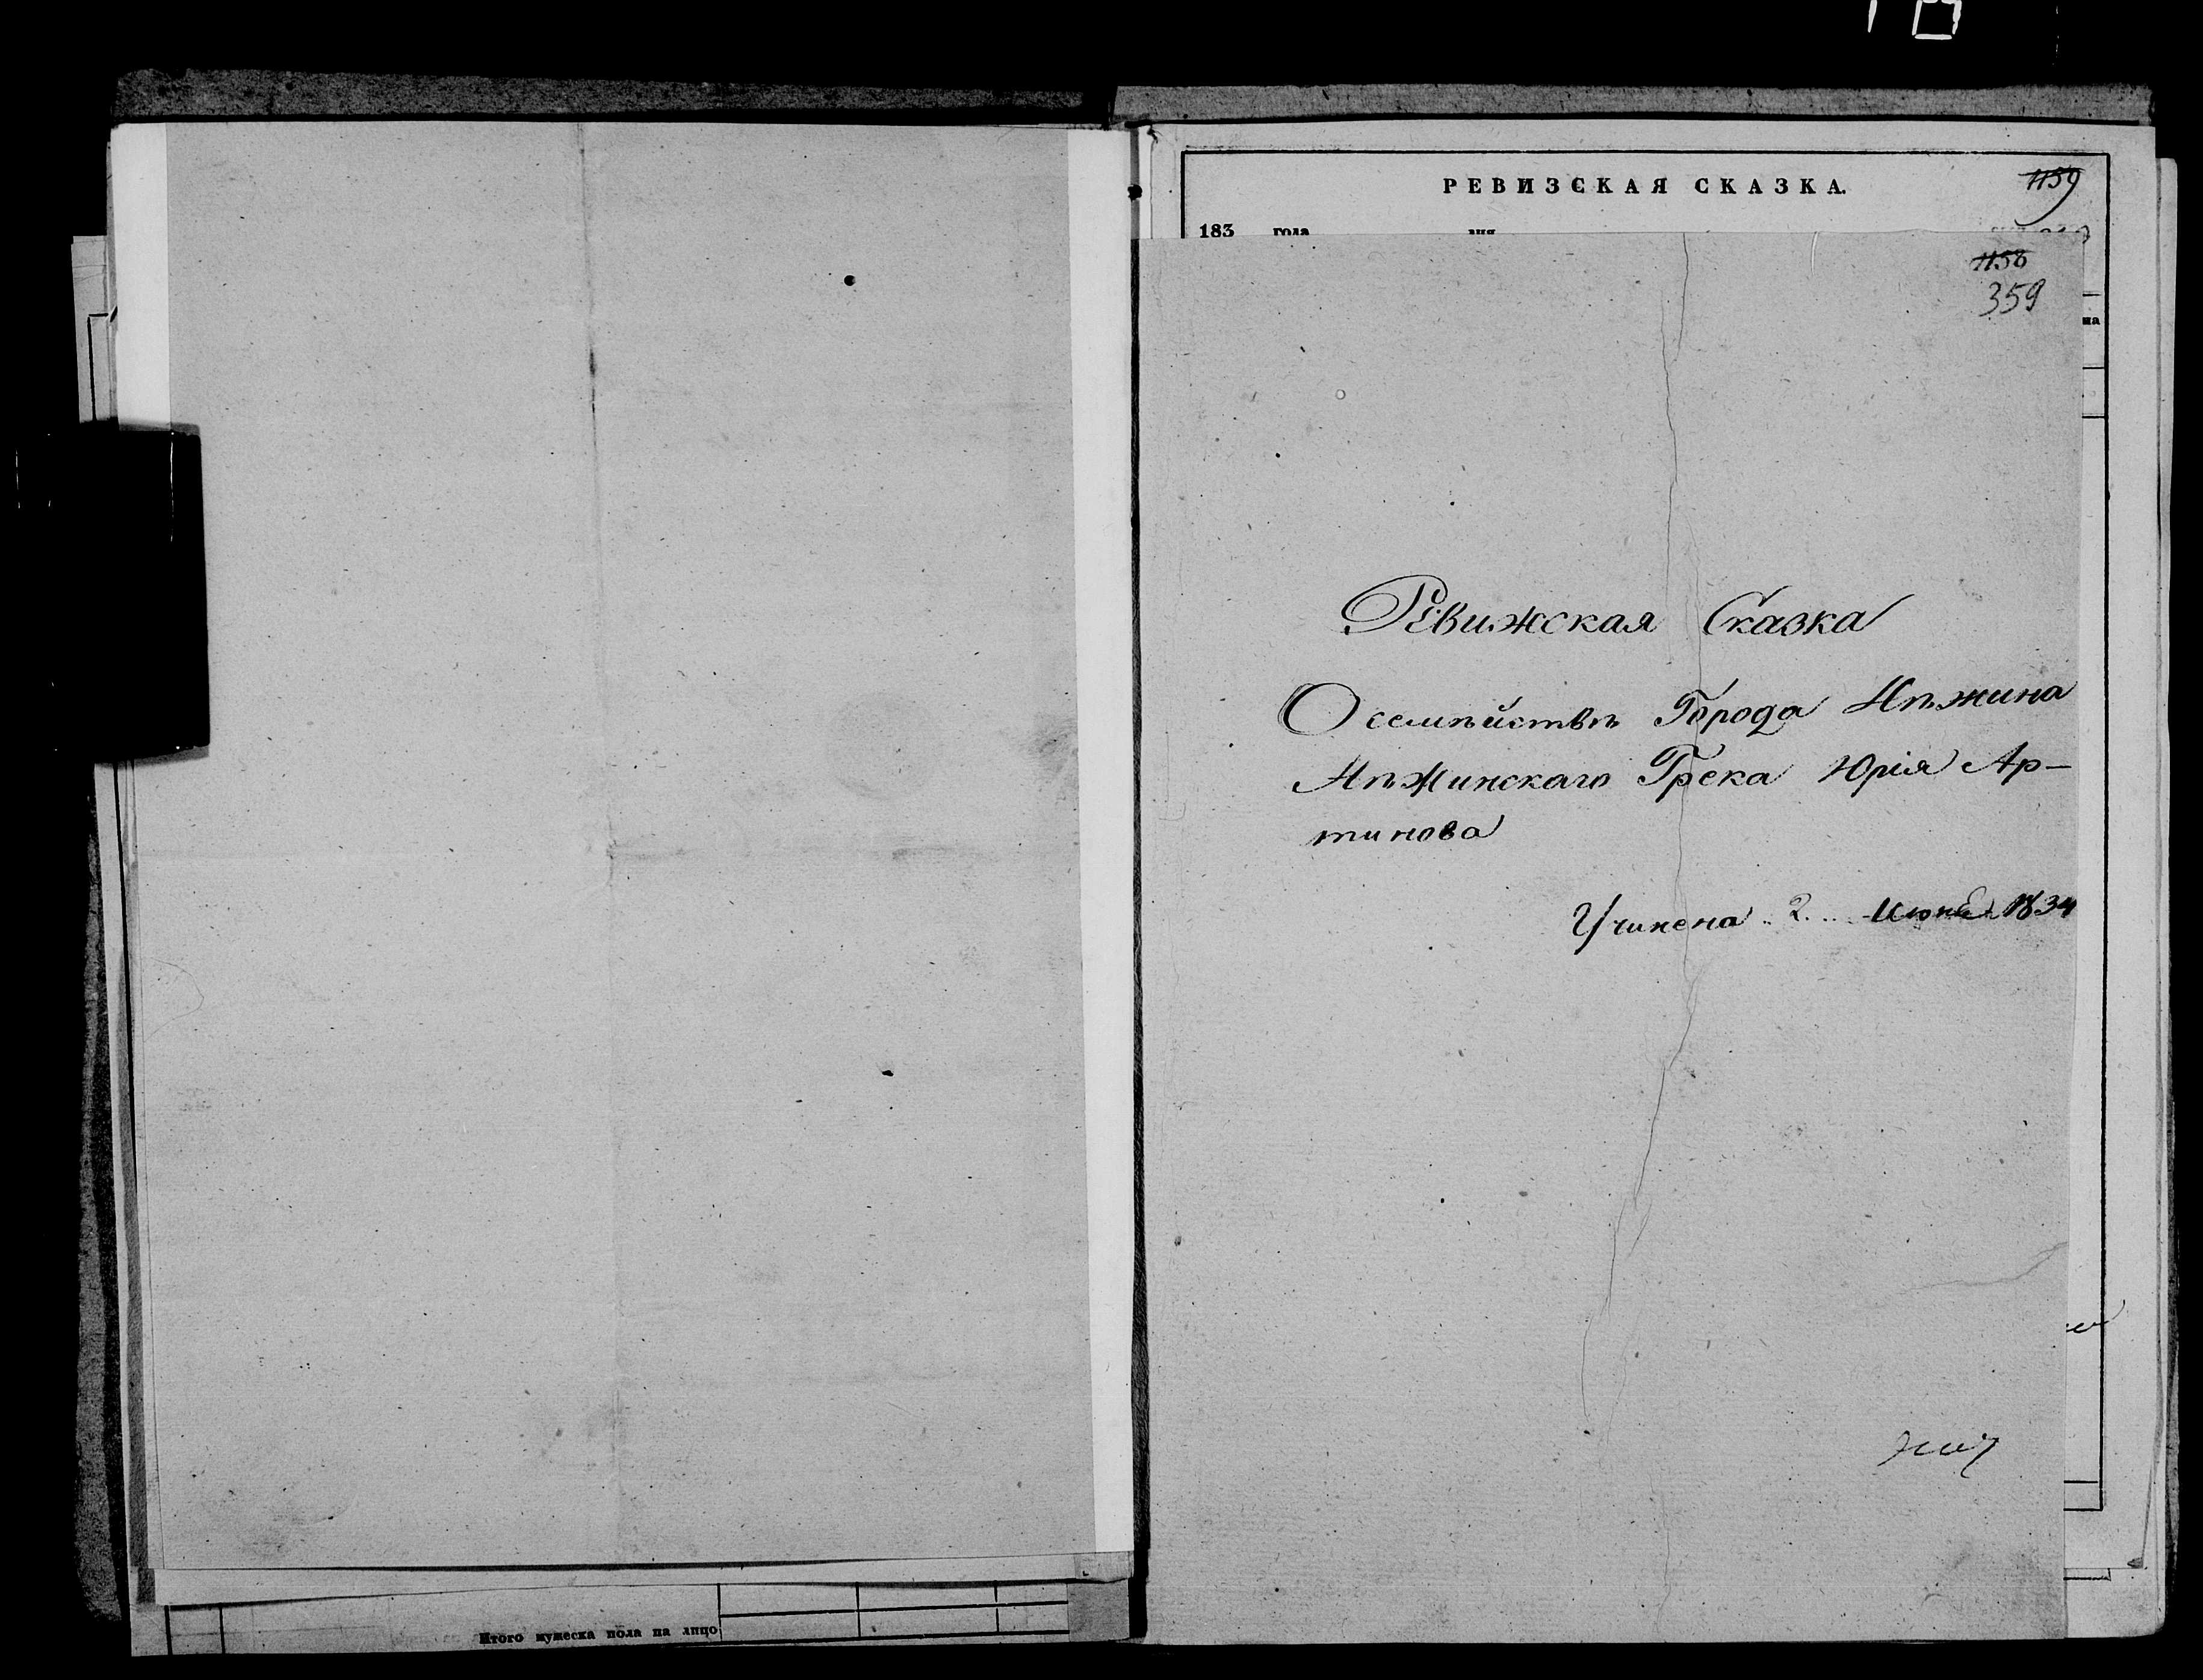 РЕВИЗСКАЯ СКАЗКА.
1159
183 года дня
1158
359
на
Ревижская Сказка
О семѣйствѣ Города Нѣжина
Нѣжинскаго Грека Юрія Ар-
тинова
Учинена .. 2 ... Июня 1834
Итого мужеска пола на лицо